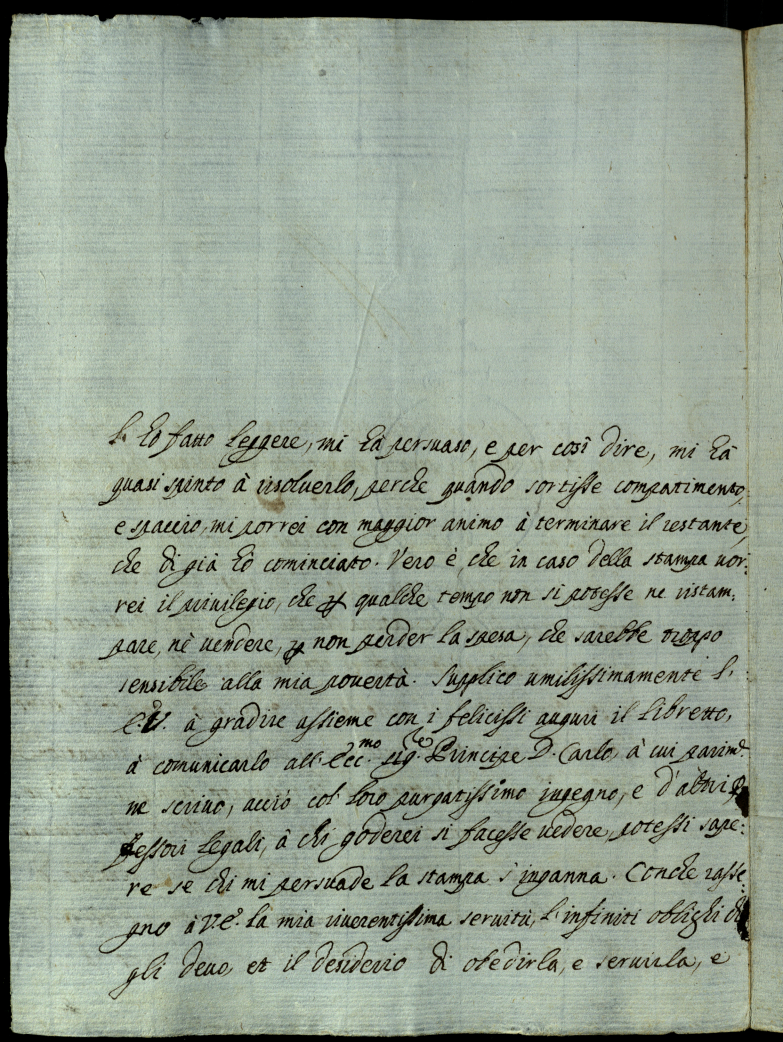 l' hò fatto leggere, mi hà persuaso, e per così dire, mi hà
quasi spinto à risoluerlo, perche quando sortisse compatimento,
e spaccio, mi porrei con maggior animo à terminare il restante,
che di già hò cominciato. Vero è, che in caso della stampa vor:
rei il priuilegio, che p qualche tempo non si potesse ne ristam,
pare, nè vendere, p non perder la spesa, che sarebbe troppo
sensibile alla mia pouertà. Supplico umilissimamente l'
E.V. à gradire assieme con i felicissi auguri il libretto,
à comunicarlo all' Ecc.mo Sig.re Principe D. Carlo, à cui parim.te
ne scriuo, acciò col loro purgatissimo ingegno, e d'altri p
fessori legali, à chi goderei si facesse uedere, potessi sape:
re se chi mi persuade la stampa s'inganna. Conche rasse:
gno à V.E. la mia riuerentissima seruitù, l'infiniti oblighi ch
gli deuo, et il desiderio di obedirla, e seruirla, e